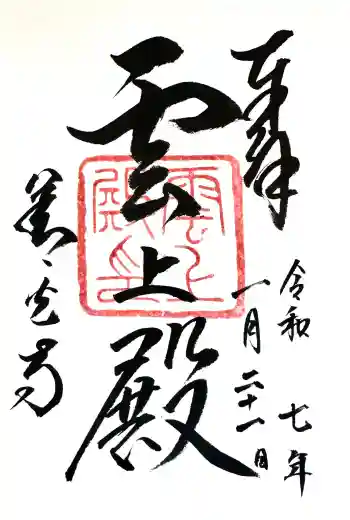 奉拝
令和七年
一月二十一日
雲上殿
雲上殿印
善光寺